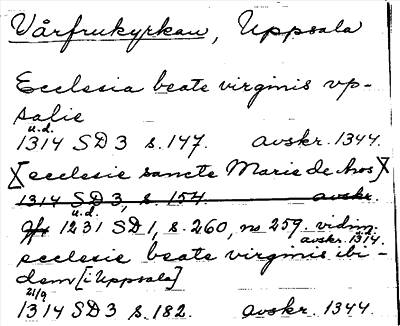 Vårfrukyrkan, Uppsala
Ecclesia beate virginis vp-
salie
u.d.
1314 SD 3 s. 147. avskr. 1344.
[ecclesie sancte Marie de Aros]
1314 SD 3, s. 154. avskr.
u.d.
1231 SD 1, s. 260, no 259. vidim.
avskr. 1314.
ecclesie beate virginis ibi-
dem [i Uppsala]
21/9
1314 SD 3 s. 182. avskr. 1344.